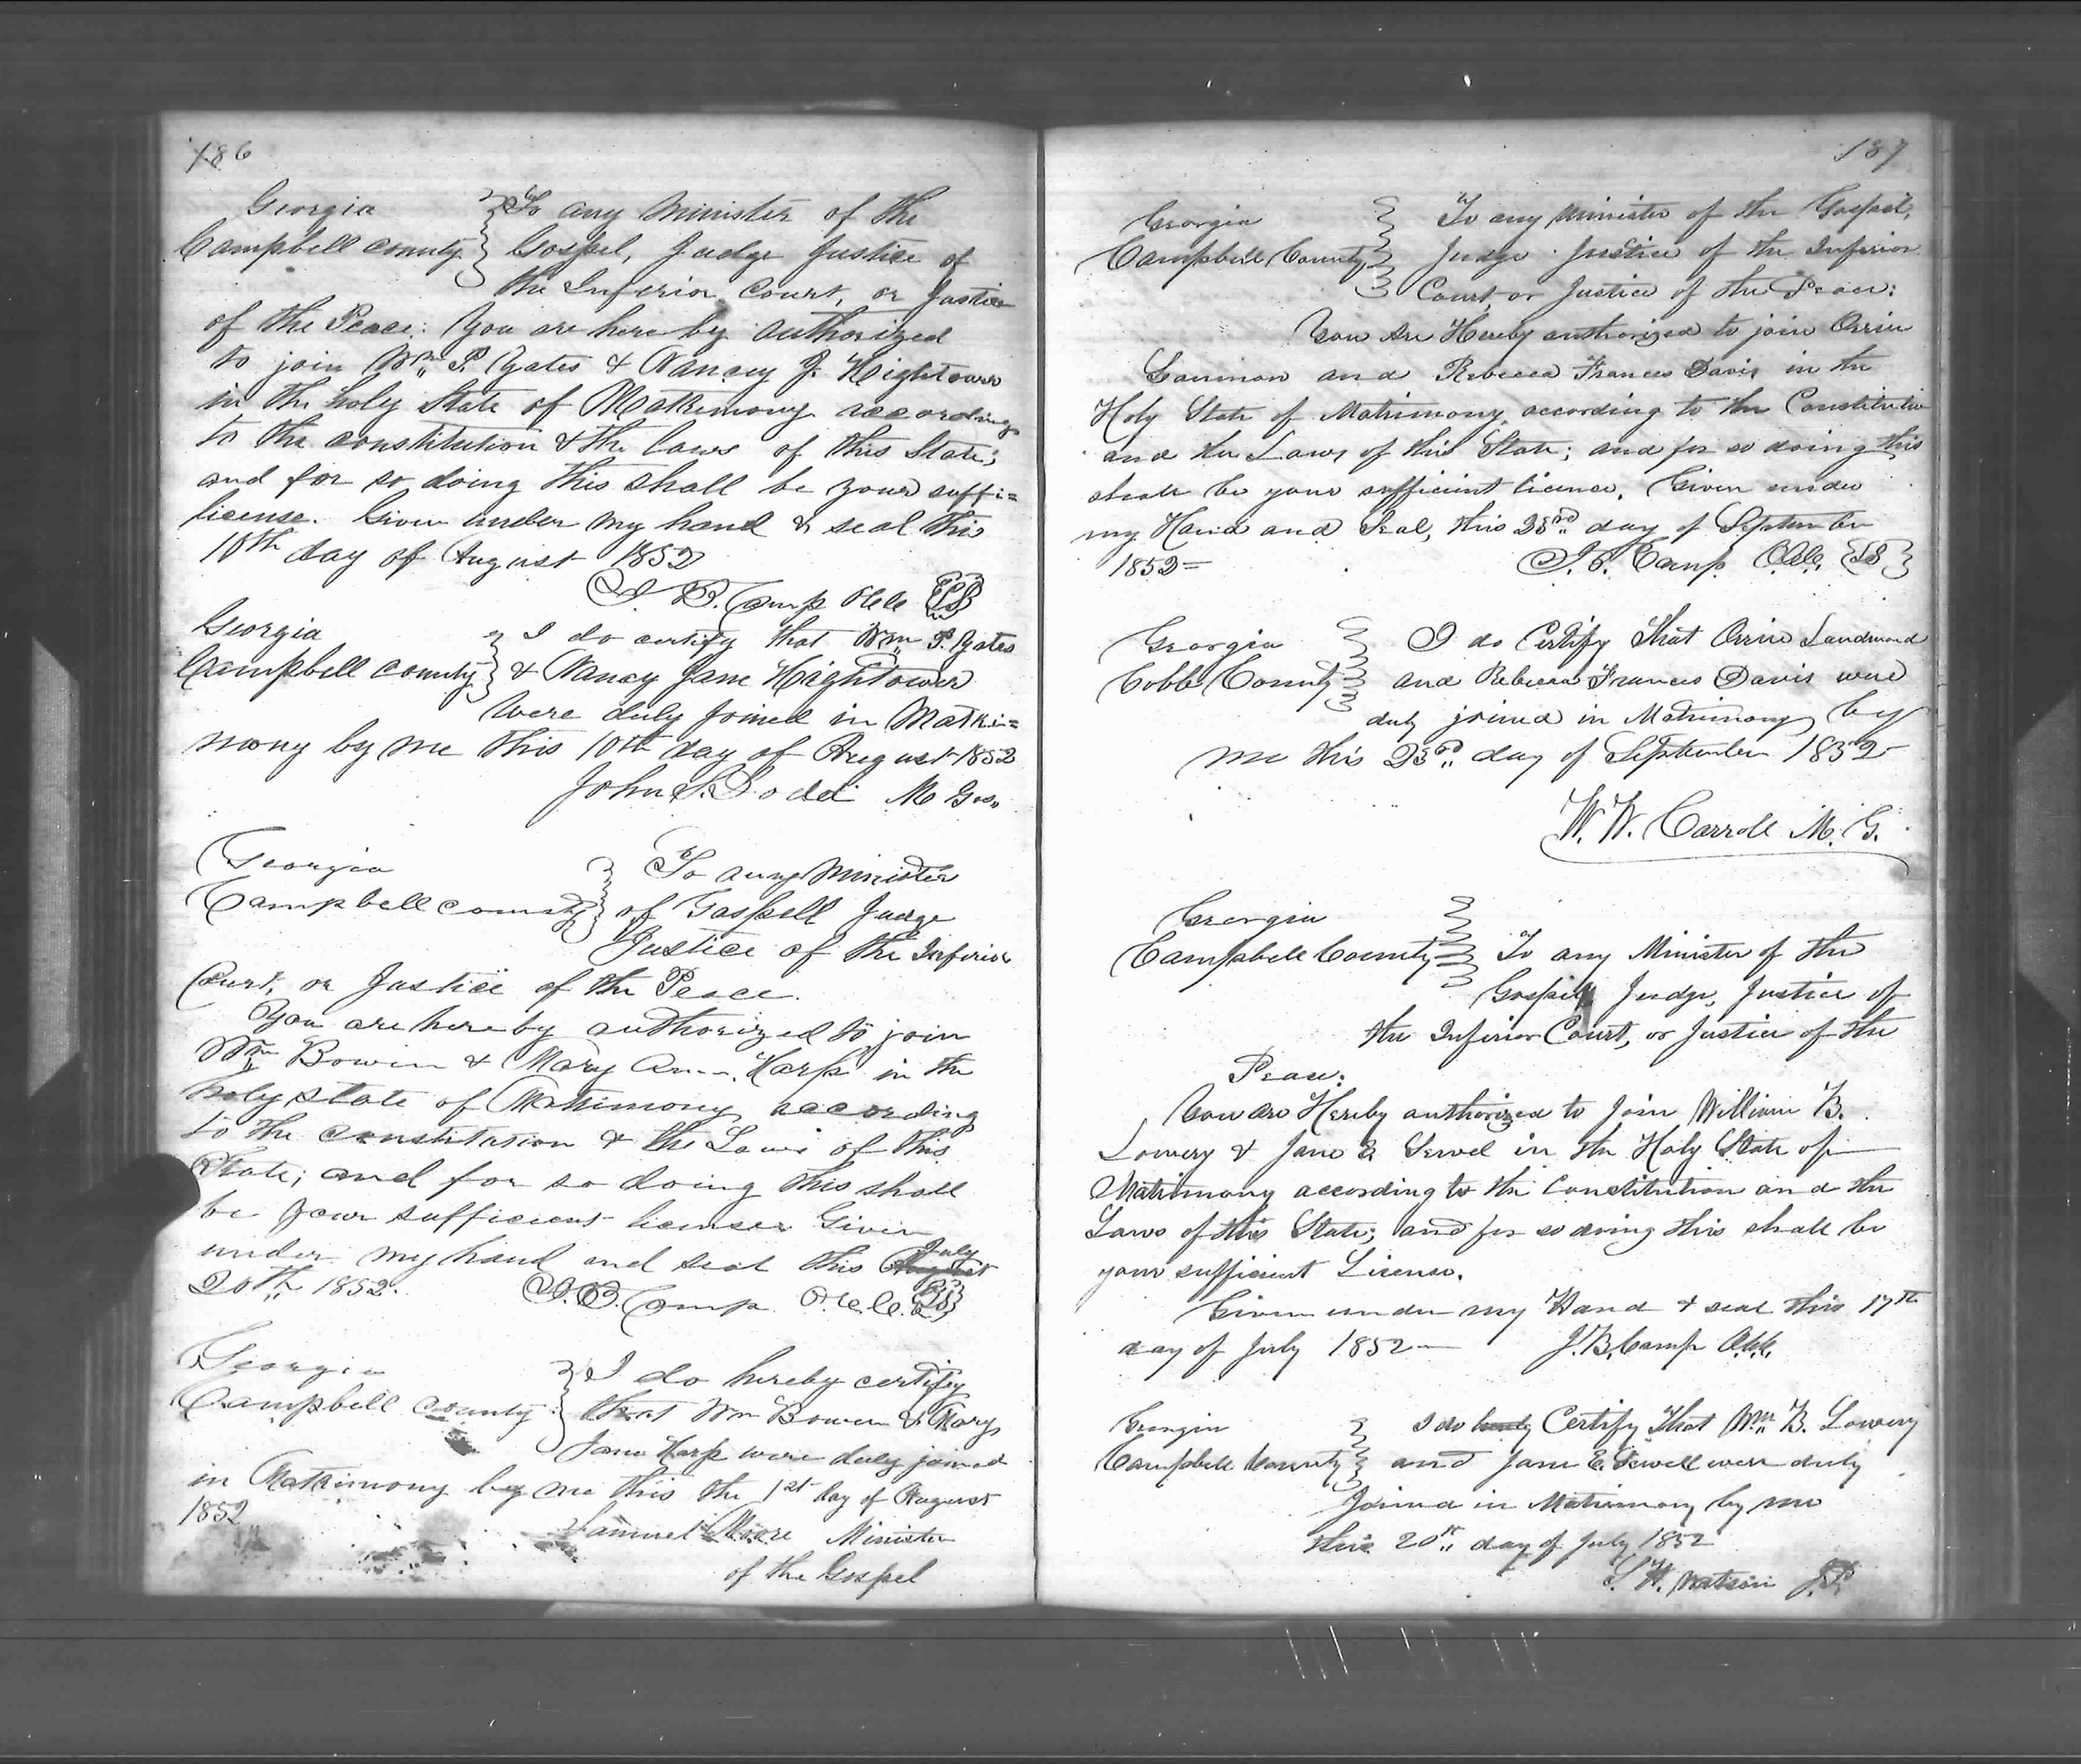 186
Georgia
Campbell county
To any Minister of the
Gospel, Judge Justice of
the Inferior Court, or Justice
of the Peace: You are here by authorized
to join Wm. P. Yates & Nancy J. Hightower
in the holy State of Matrimony according
to the constitution & the laws of this State;
and for so doing this shall be your suffi=
license. Given under my hand & seal this
10th day of August 1852
J. B. Camp
Georgia
Campbell county
I do certify that Wm. P. Yates
& Nancy Jane Hightower
Were duly Joined in Matri=
mony by me this 10th day of August 1852
John S. Dodd M Gos.
Georgia
Campbell county
To any Minister
of Gospell Judge
Justice of the Inferior
Court, or Justice of the Peace.
You are here by authorized to join
Wm. Bowen & Mary Ann Harp in the
holy state of Matrimony according
to the constitution & the Laws of this
State; and for so doing this shall
be your sufficient license Given
under my hand and seal this August July
20th 1852. J. B. Camp C.C.O. LS
Georgia
Campbell county
I do hereby certify
that Wm Bowen & Mary
Jane Harp were duly joined
in Matrimony by me this the 1st day of August
1852
Samuel Moore Minister
of the Gospel
187
Georgia
Campbell County
To any Minister of the Gospel,
Judge Justice of the Inferior
Court or Justice of the Peace:
You Are Hereby authorized to join Orrin
and Rebecca Frances Davis in the
Holy State of Matrimony according to the Constitution
and the Laws of this State; and for so doing this
shall be your sufficient licence. Given under
my Hand and Seal, this 23rd day of September
1852= J. B. Camp C.C.O. LS
Georgia
Cobb County
I do Certify That Orrin Landmond
and Rebecca Frances Davis were
duly joined in Matrimony by
me this 23rd day of September 1852
W. W. Carroll M. G.
Georgia
Campbell County
To any Minister of the
Gospel, Judge, Justice of
the Inferior Court, or Justice of the
Peace:
You are Hereby authorized to Join William B.
Lowery & Jane E Sewel in the Holy State of
Matrimony according to the Constitution and the
Laws of this State; and for so doing this shall be
your sufficient License.
Given under my Hand & seal this 17th
day of July 1852 J. B. Camp C.C.O.
Georgia
Campbell County
I do hereby Certify That Wm. B. Lowery
and Jane E. Sewell were duly
Joined in Matrimony by me
this 20th day of July 1852
S. W. Watson J.P.